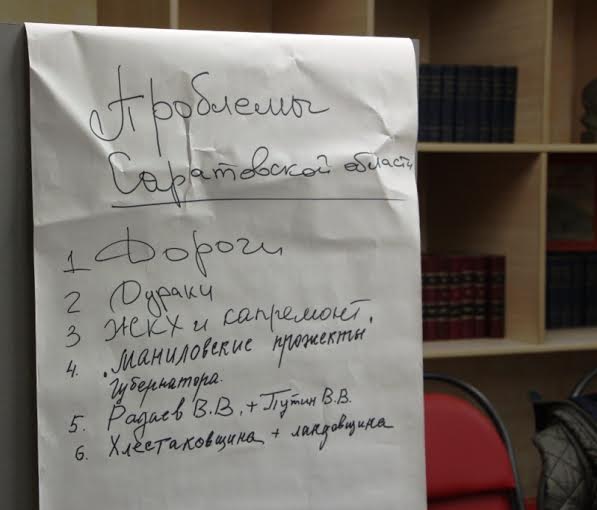 Проблемы
Саратовской области
1 Дороги
2 Дураки
3 ЖКХ и капремонт.
4. Маниловские прожекты
губернатора.
5. Радаев В.В. + Путин В.В.
6. Хлестаковщина + ландовщина